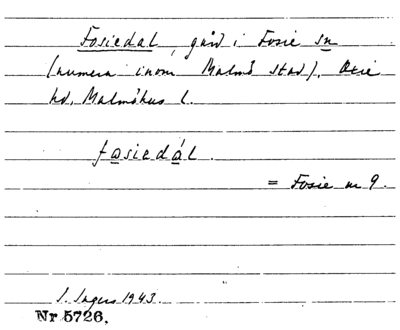 Fosiedal, gård i Fosie sn
(numera inom Malmö stad). Oxie
hd, Malmöhus l.
fasiedál.
= Fosie nr 9.
I. Ingers 1943.
Nr 5726.